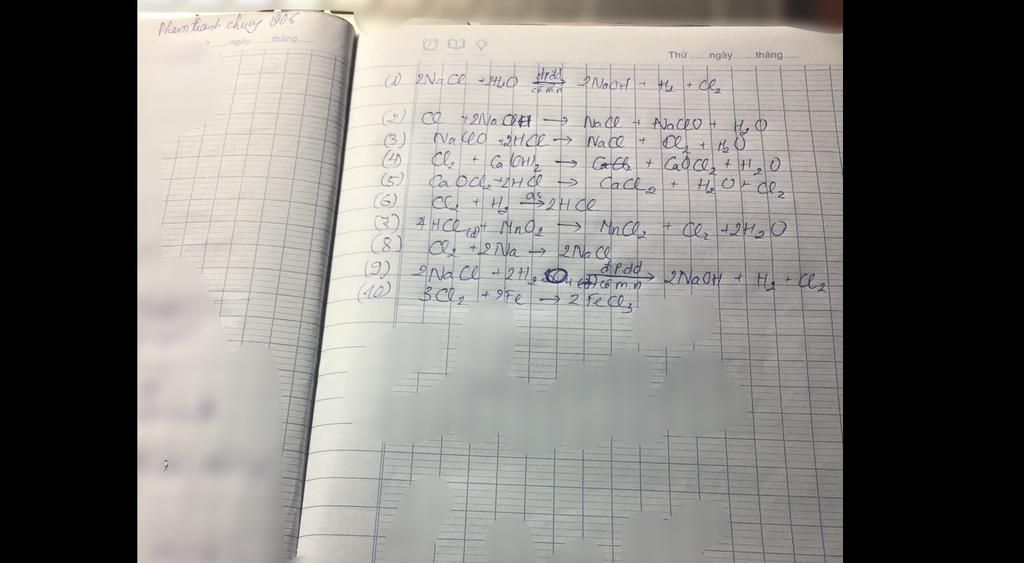 Phạm thành chung 906
ngày tháng
Thứ ngày tháng
(1) 2NaCl + 2H2O đpdd có m.n → 2NaOH + H2 + Cl2
(2) Cl2 + 2NaOH → NaCl + NaClO + H2O
(3) NaClO + 2HCl → NaCl + Cl2 + H2O
(4) Cl2 + Ca(OH)2 → CaCl2 + CaOCl2 + H2O
(5) CaOCl2 + 2HCl → CaCl2 + H2O + Cl2
(6) Cl2 + H2 as → 2HCl
(7) 4HCl(đ) + MnO2 → MnCl2 + Cl2 + 2H2O
(8) Cl2 + 2Na → 2NaCl
(9) 2NaCl + 2H2O đpdd có m.n → 2NaOH + H2 + Cl2
(10) 3Cl2 + 2Fe → 2FeCl3